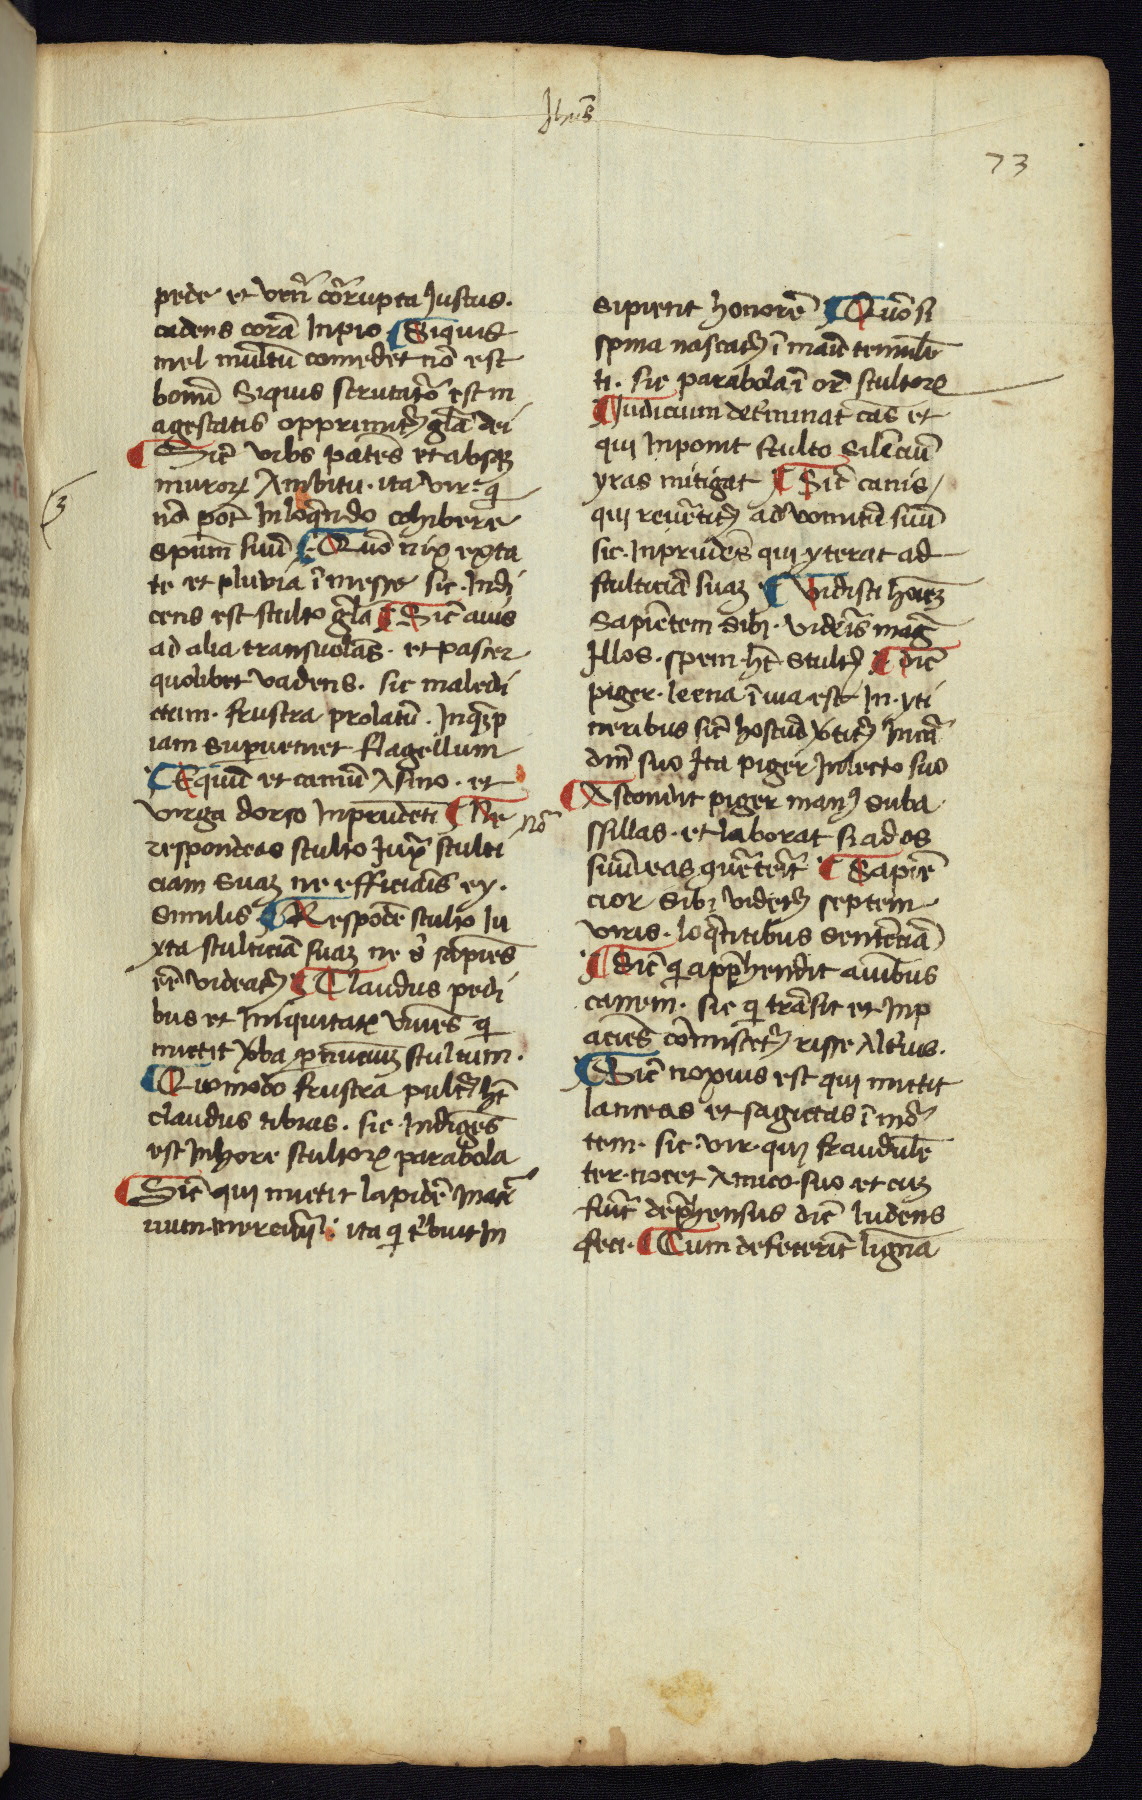 Jhūs
73
pede et veñ corrupta Justus.
cadens corā Inpio ¶ Siquis
mel multū comedet nō est
bonū Siquis scrutator est m
agestatis opprimitur glā dei
¶ Sic̄ vrbs patēs et absque
muroꝝ Ambitu. ita vir. q̄
nō pōt In loquendo cohibere
spūm suū ¶ Quō nix exta
te et pluvia ī messe sic. Indi
cens est stulto glā ¶ Sic̄ avis
ad alia transuolās. et passer
quolibet vadens. sic maledi
ctum. frustra prolatū. Inquēp
iam superueniet flagellum
¶ Equū et camū Asino. et
virga dorso Inprudēti ¶ Ne
nō
respondeas stulto Juxᵃ stulti
ciam suaꝫ ne efficiaris ey.
similis ¶ Respōde stulto Ju
xta stulticiā suaꝫ ne sᵉ sapiēs
eē videatur ¶ Claudus pedi
bus et Iniquitatē viuēs q̄
mictit vᵉba per nūciuꝫ stultum.
¶ Quomodo frustra pulcᵃs ht̄
claudus tibias. sic Indigēs
est In hore stultorꝝ parabola
¶ Sic̄ qui mictit lapidē In acᵉ
uum mercurij. ita q̄ tᵉbuit In
sipienti honorē ¶ Quō si
spina nascatur ī manū temulē
ti. sic parabola ī orē stultorꝝ
¶ Judicium detᵉminat cās et
qui Inponit stulto silēciū
yras mitigat ¶ Sic̄ canis
qui reuertitur ad vomitū suū
sic. Inprudēs qui yterat ad
stulticiā suaꝫ ¶ Vidisti hoīeꝫ
sapiētem sibi. viderīs magᵉ
Jllos. spem ht̄ stultus ¶ dic̄
piger. leena ī via est In. yti
neribus sic̄ hostiū vᵉtitur In cᵃ
dīne suo Ita piger In lecto suo
¶ Ascondit piger manus suba
ssillas. et laborat si ad os
suū eas quᵉtērit ¶ Sapiē
cior sibi videtur septem
viris. loquentibus sentēciā
¶ Sic̄ q̄ apprehendit auribus
canem. sic q̄ trāsit et Inp
aciēs commiscetur risse Altᵉius.
¶ Sic̄ noxius est qui mictit
lanceas et sagictas ī mor
tem. sic. vir. qui fraudulē
ter nocet Amico suo et cuꝫ
fuerit deprehensus dic̄ ludens
feci. ¶ Cum defecerīt ligna